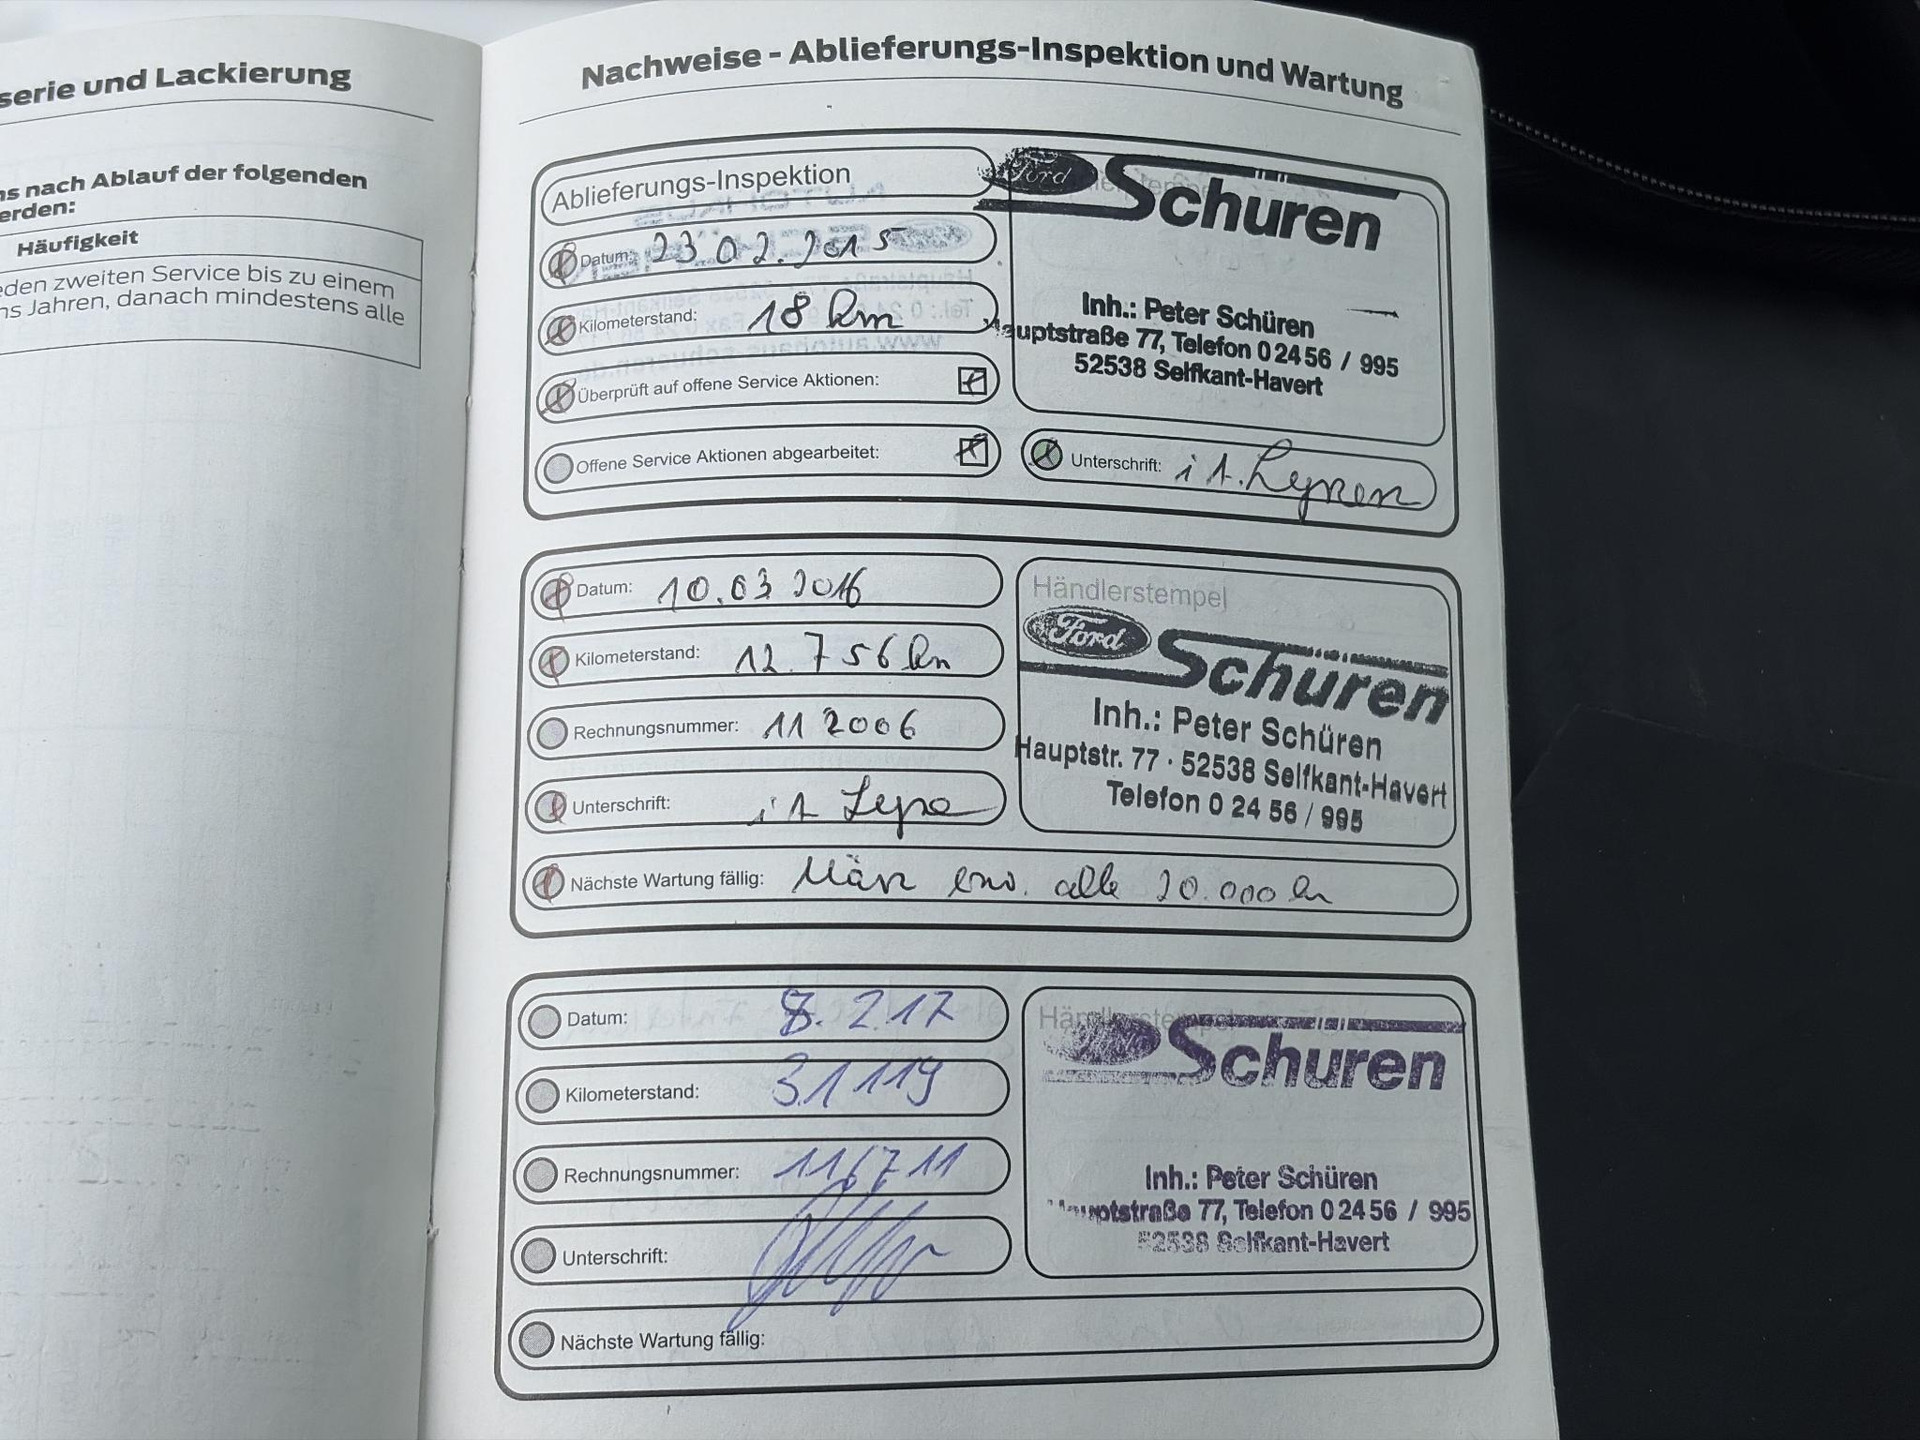 serie und Lackierung
ns nach Ablauf der folgenden
erden:
Häufigkeit
eden zweiten Service bis zu einem
ns Jahren, danach mindestens alle
Nachweise - Ablieferungs-Inspektion und Wartung
Ablieferungs-Inspektion
Datum: 23.02.2015
Kilometerstand: 18 km
Überprüft auf offene Service Aktionen:
Offene Service Aktionen abgearbeitet:
Ford Schuren
Inh.: Peter Schüren
Hauptstraße 77, Telefon 0 24 56 / 995
52538 Selfkant-Havert
Unterschrift:
Datum: 10.03 2016
Kilometerstand: 12.756 km
Rechnungsnummer: 112006
Unterschrift:
Händlerstempel
Ford Schüren
Inh.: Peter Schüren
Hauptstr. 77 · 52538 Selfkant-Havert
Telefon 0 24 56 / 995
Nächste Wartung fällig: März alle 20.000 km
Datum: 8.2.17
Kilometerstand: 31119
Rechnungsnummer: 116711
Unterschrift:
Händlerstempel
Schuren
Inh.: Peter Schüren
Hauptstraße 77, Telefon 0 24 56 / 995
52538 Selfkant-Havert
Nächste Wartung fällig: